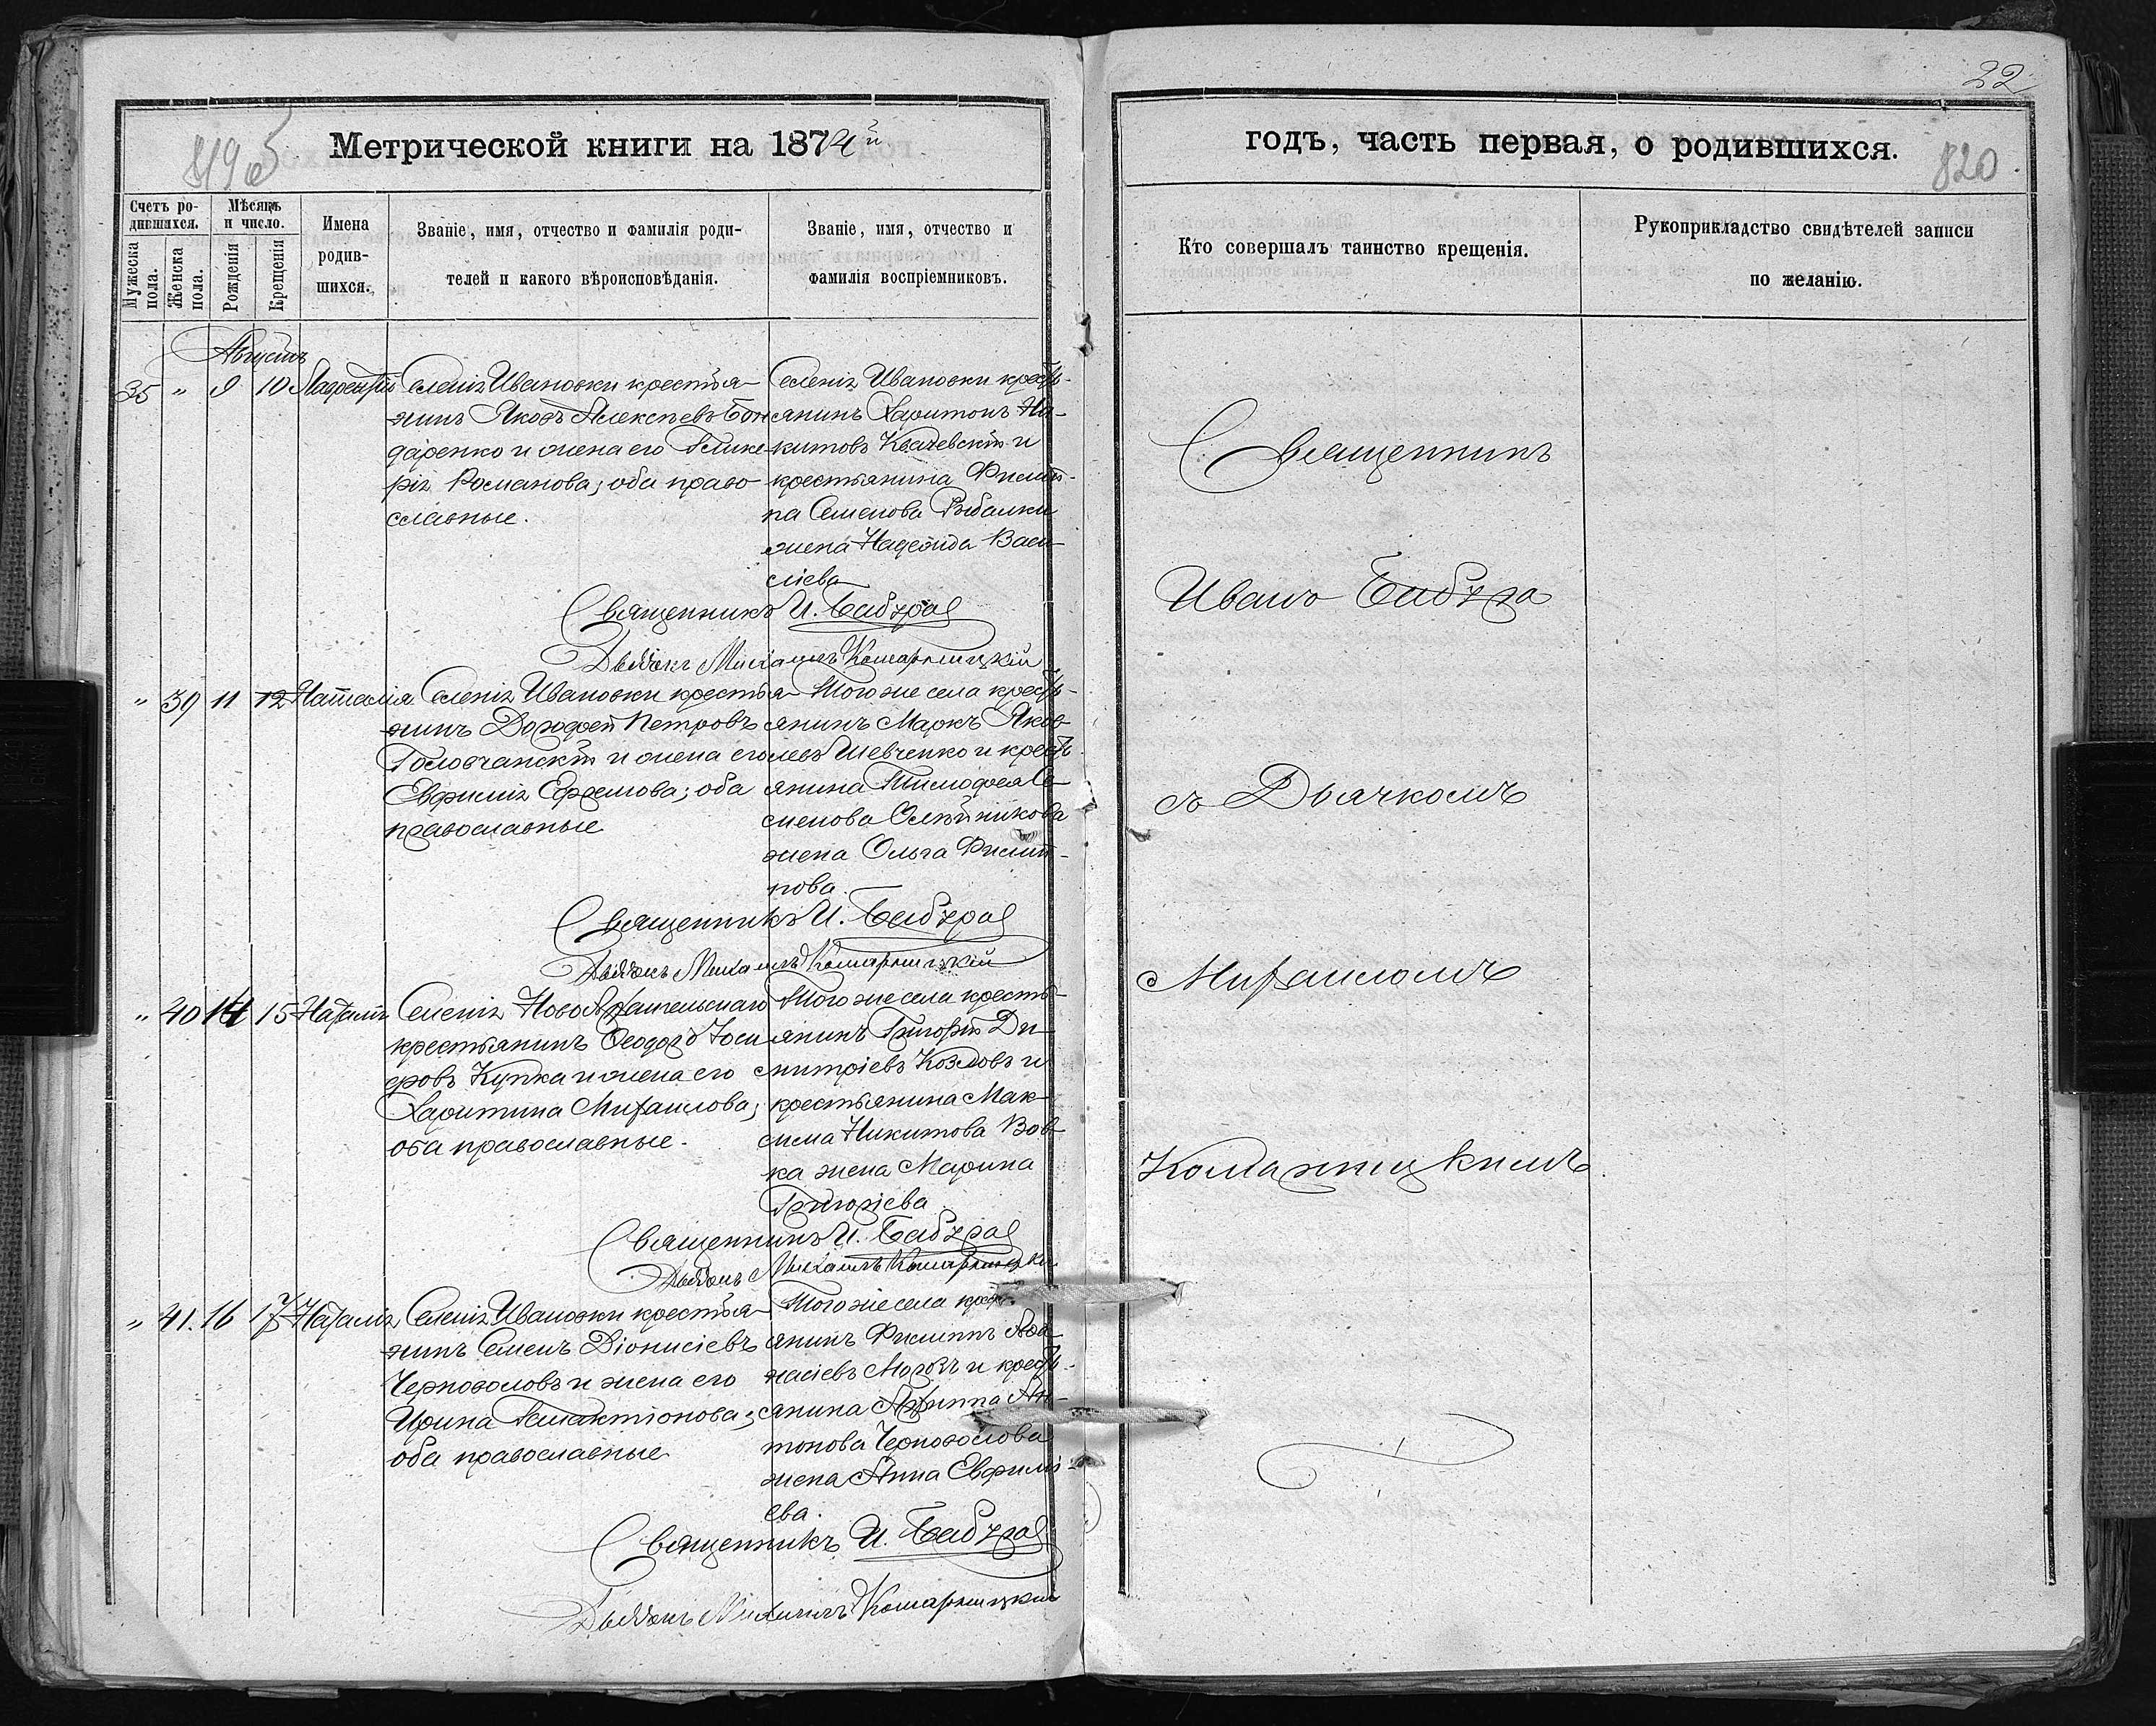 22
819 об
Метрической книги на 1874й
годъ, часть первая, о родившихся.
820
Счетъ родившихся.
Мужеска пола.
Женска пола.
Мѣсяцъ и число.
Рожденія
Крещенія
Имена родившихся.
Званіе, имя, отчество и фамилія родителей и какого вѣроисповѣданія.
Званіе, имя, отчество и фамилія воспріемниковъ.
Кто совершалъ таинство крещенія.
Рукоприкладство свидѣтелей записи по желанію.
Августъ
35 " 9 10 Лаврентій
Селенія Ивановки крестья-
нинъ Яковъ Алексѣевъ Бон
даренко и жена его Глике-
рія Романова; оба право-
славные.
Селенія Ивановки кресть-
янинъ Харитонъ Ни-
китовъ Квачевскій и
крестьянина Филип-
па Семенова Рыбалки
жена Надежда Васи-
ліева
Священникъ И. Бабура
Дьячокъ Михаилъ Комарницкій
" 39 11 12 Наталія
Селенія Ивановки крестья-
нинъ Дорофей Петровъ
Головчанскій и жена его
Евфимія Ефремова; оба
православные
Того же села кресть-
янинъ Маркъ Яков-
левъ Шевченко и кресть-
янина Тимофея Се-
менова Олѣйникова
жена Ольга Филип-
пова.
Священникъ И. Бабура
Дьячокъ Михаилъ Комарницкій
" 40 14 15 Наталія
Селенія Ново Архангельскаго
крестьянинъ Ѳеодоръ Іоси
фовъ Купка и жена его
Харитина Михаилова;
оба православные.
Того же села кресть-
янинъ Григорій Ди-
митріевъ Козловъ и
крестьянина Мак-
сима Никитова Вов-
ка жена Марина
Григоріева
Священникъ И. Бабура
Дьячокъ Михаилъ Комарницкій
" 41. 16 17 Наталія
Селенія Ивановки крестья-
нинъ Семенъ Діонисіевъ
Черноволовъ и жена его
Ирина Галактіонова;
оба православные
Того же села кресть-
янинъ Филиппъ Аѳа-
насіевъ Морозъ и кресть-
янина Архиппа Ан-
тонова Черноволова
жена Анна Евфимі-
ева.
Священникъ И. Бабура
Дьячокъ Михаилъ Комарницкій
Священникъ
Иванъ Бабура
съ Дьячкомъ
Михаиломъ
Комарницкимъ